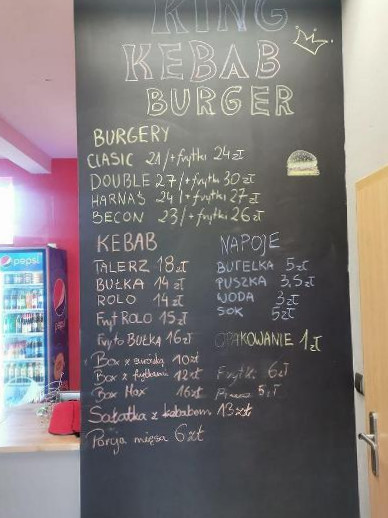 KING
KEBAB
BURGER
BURGERY
CLASIC 21/+frytki 24 zł
DOUBLE 27/+frytki 30 zł
HARNAŚ 24/+frytki 27 zł
BECON 23/+frytki 26 zł
KEBAB
TALERZ 18 zł
BUŁKA 14 zł
ROLO 14 zł
Fryt ROLO 15 zł
Fryto BUŁKA 16 zł
Box z surówką 10 zł
Box z frytkami 12 zł
Box Max 16 zł
Sałatka z kebabem 13 zł
Porcja mięsa 6 zł
NAPOJE
BUTELKA 5 zł
PUSZKA 3,5 zł
WODA 3 zł
SOK 5 zł
OPAKOWANIE 1 zł
Frytki 6 zł
5 zł
pepsi